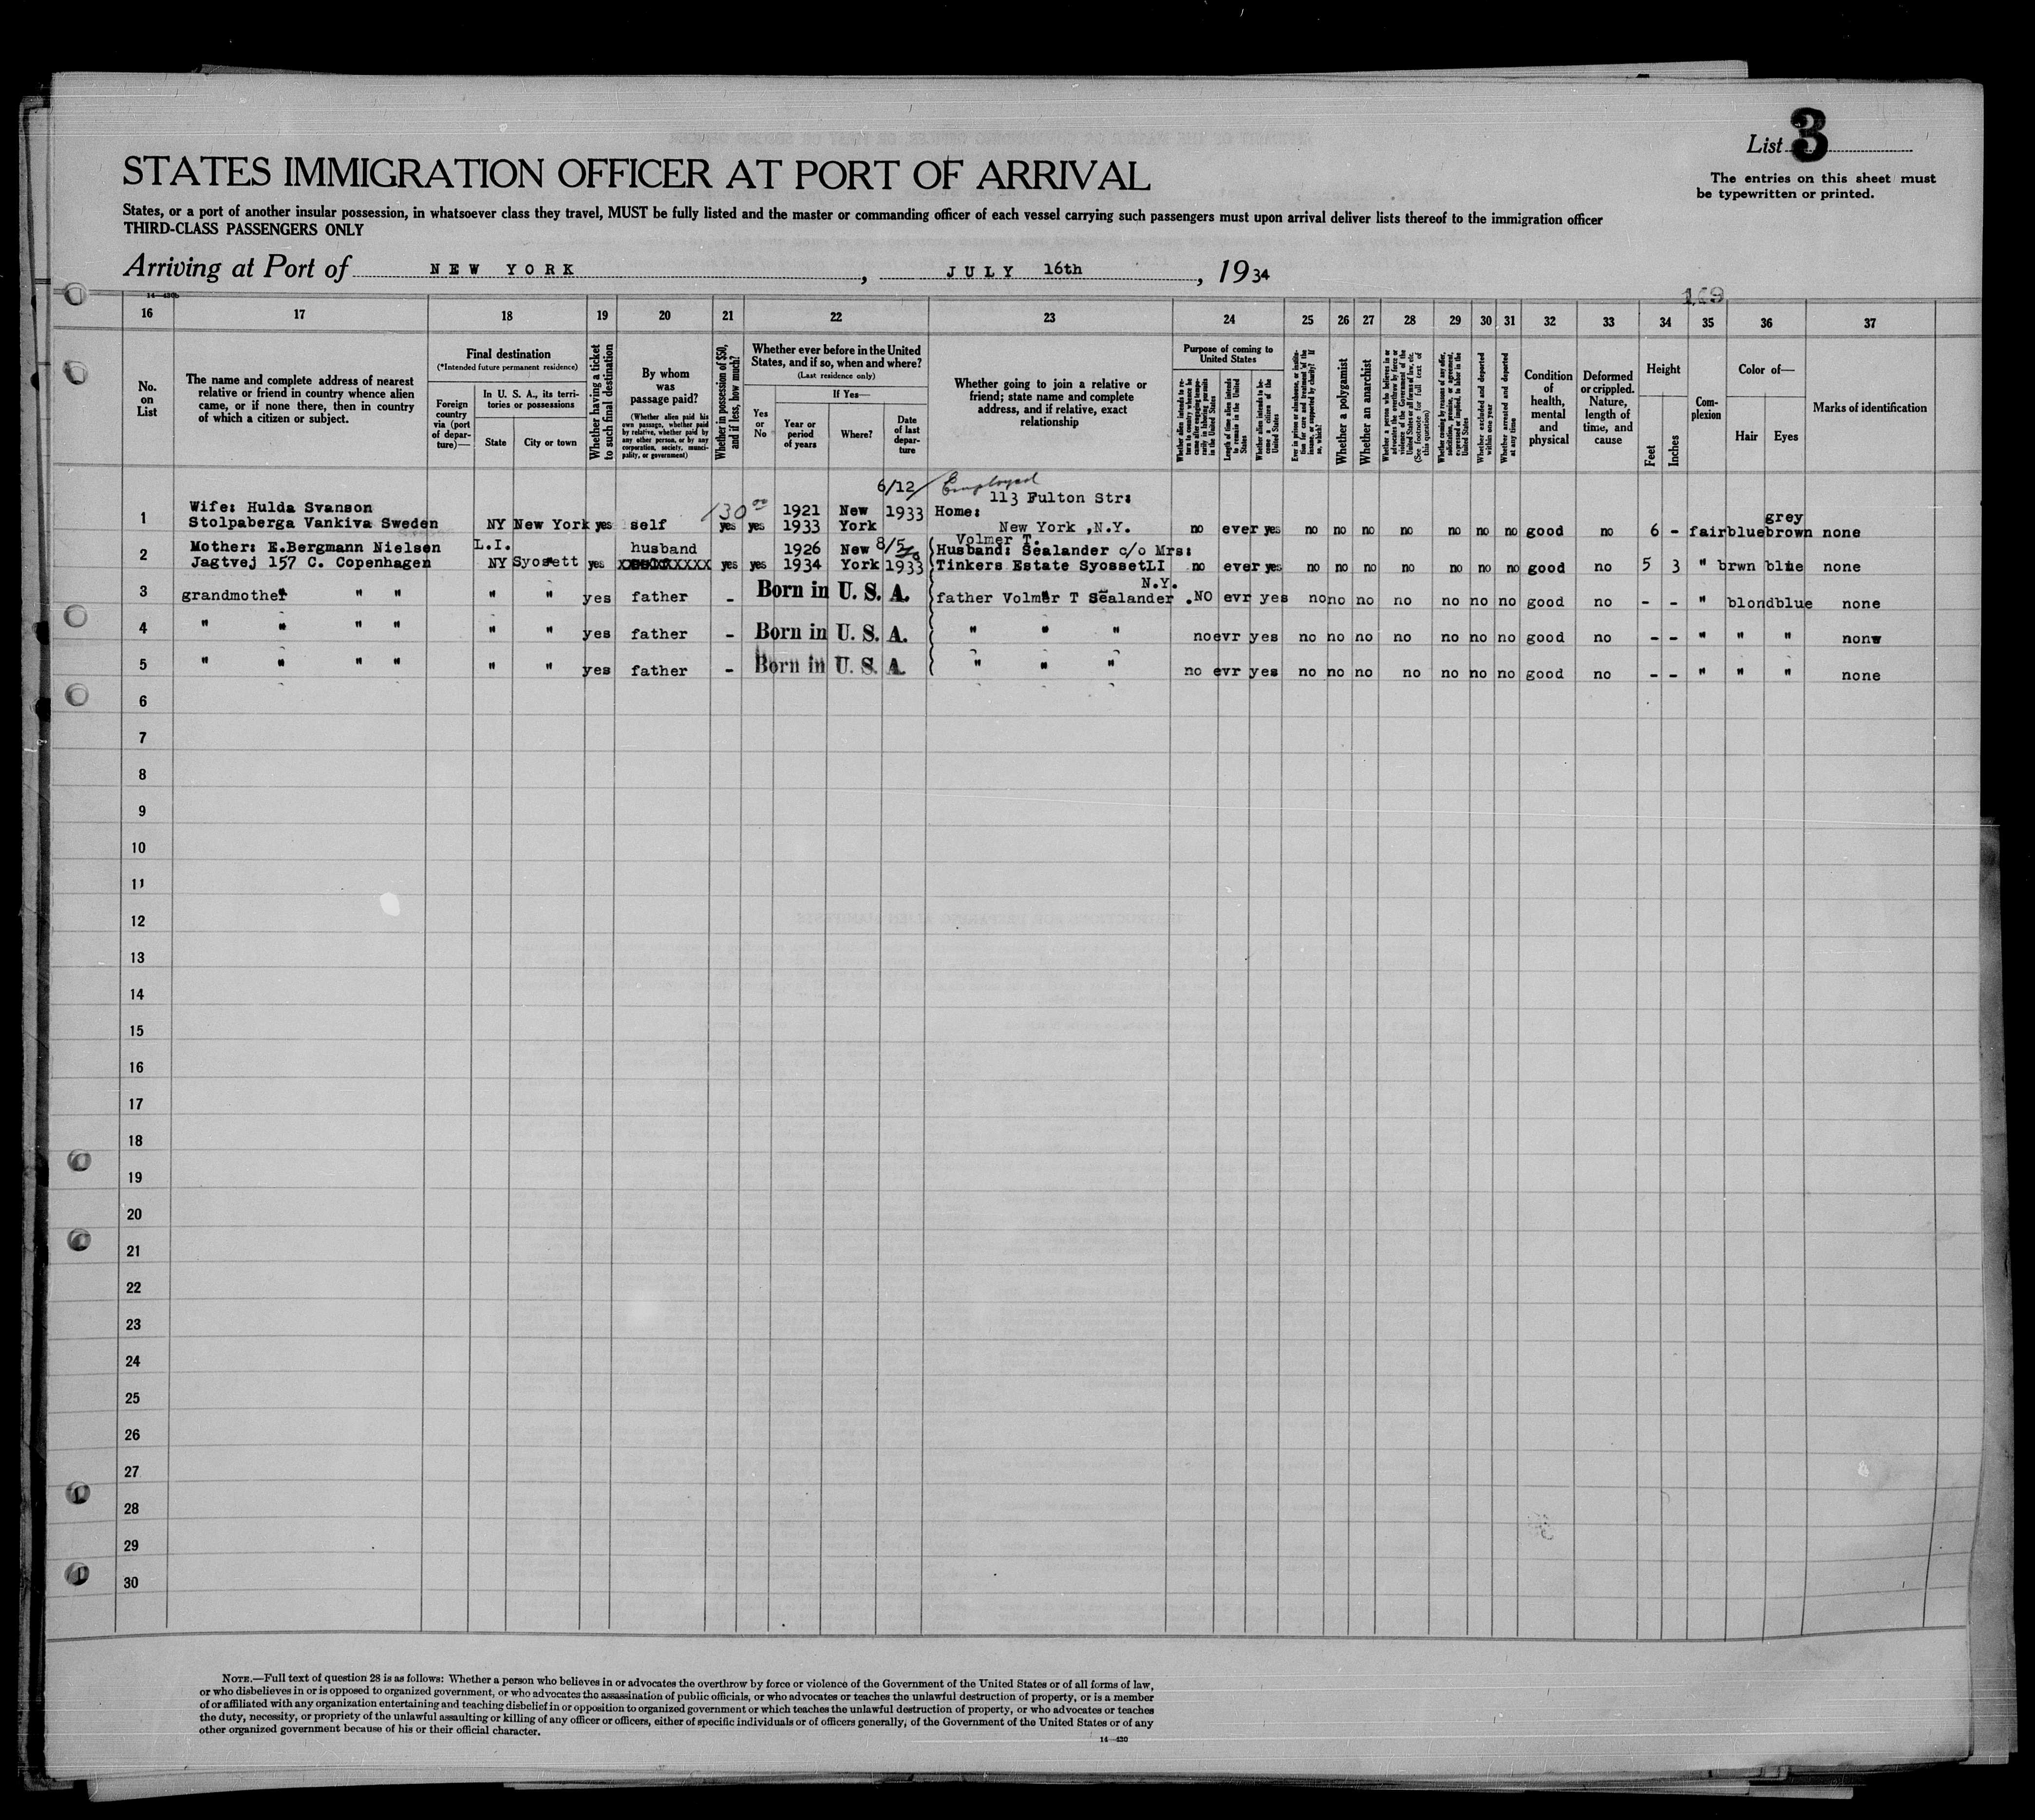 List 3
The entries on this sheet must
be typewritten or printed.
STATES IMMIGRATION OFFICER AT PORT OF ARRIVAL
States, or a port of another insular possession, in whatsoever class they travel, MUST be fully listed and the master or commanding officer of each vessel carrying such passengers must upon arrival deliver lists thereof to the immigration officer
THIRD-CLASS PASSENGERS ONLY
Arriving at Port of NEW YORK, JULY 16th, 1934
169
16 17 18 19 20 21 22 23 24 25 26 27 28 29 30 31 32 33 34 35 36 37
No. on List
The name and complete address of nearest
relative or friend in country whence alien
came, or if none there, then in country
of which a citizen or subject.
Final destination
(*Intended future permanent residence)
Foreign country via (port of departure)—
In U. S. A., its territories or possessions
State
City or town
Whether having a ticket to such final destination
By whom was passage paid?
(Whether alien paid his own passage, whether paid by relative, whether paid by any other person, or by any corporation, society, municipality, or government)
Whether in possession of $50, and if less, how much?
Whether ever before in the United States, and if so, when and where?
(Last residence only)
Yes or No
If Yes—
Year or period of years
Where?
Date of last departure
Whether going to join a relative or
friend; state name and complete
address, and if relative, exact
relationship
Purpose of coming to United States
Length of time alien intends to remain in the United States
Whether alien intends to become a citizen of the United States
Whether a polygamist
Whether an anarchist
Whether excluded and deported within one year
Whether arrested and deported at any time
Condition of health, mental and physical
Deformed or crippled. Nature, length of time, and cause
Height
Feet
Inches
Complexion
Color of—
Hair
Eyes
Marks of identification
6/12/ Employed
113 Fulton Str:
1 Wife: Hulda Svanson 130 00 1921 New 1933 Home: grey
Stolpaberga Vankiva Sweden NY New York yes self yes yes 1933 York New York ,N.Y. no ever yes no no no no no no no good no 6 - fair blue brown none
Volmer T.
2 Mother: E.Bergmann Nielsen L.I. husband 1926 New 8/5 Husband: Sealander c/o Mrs:
Jagtvej 157 C. Copenhagen NY Syosett yes yes yes 1934 York 1933 Tinkers Estate Syosset LI no ever yes no no no no no no no good no 5 3 " brwn blue none
N.Y.
3 grandmother " " " " yes father - Born in U. S. A. father Volmer T Sealander .NO evr yes no no no no no no no good no - - " blond blue none
4 " " " " " " yes father - Born in U. S. A. " " " no evr yes no no no no no no no good no - - " " " none
5 " " " " " " yes father - Born in U. S. A. " " " no evr yes no no no no no no no good no - - " " " none
6
7
8
9
10
11
12
13
14
15
16
17
18
19
20
21
22
23
24
25
26
27
28
29
30
NOTE.—Full text of question 28 is as follows: Whether a person who believes in or advocates the overthrow by force or violence of the Government of the United States or of all forms of law,
or who disbelieves in or is opposed to organized government, or who advocates the assassination of public officials, or who advocates or teaches the unlawful destruction of property, or is a member
of or affiliated with any organization entertaining and teaching disbelief in or opposition to organized government or which teaches the unlawful destruction of property, or who advocates or teaches
the duty, necessity, or propriety of the unlawful assaulting or killing of any officer or officers, either of specific individuals or of officers generally, of the Government of the United States or of any
other organized government because of his or their official character.
14—430